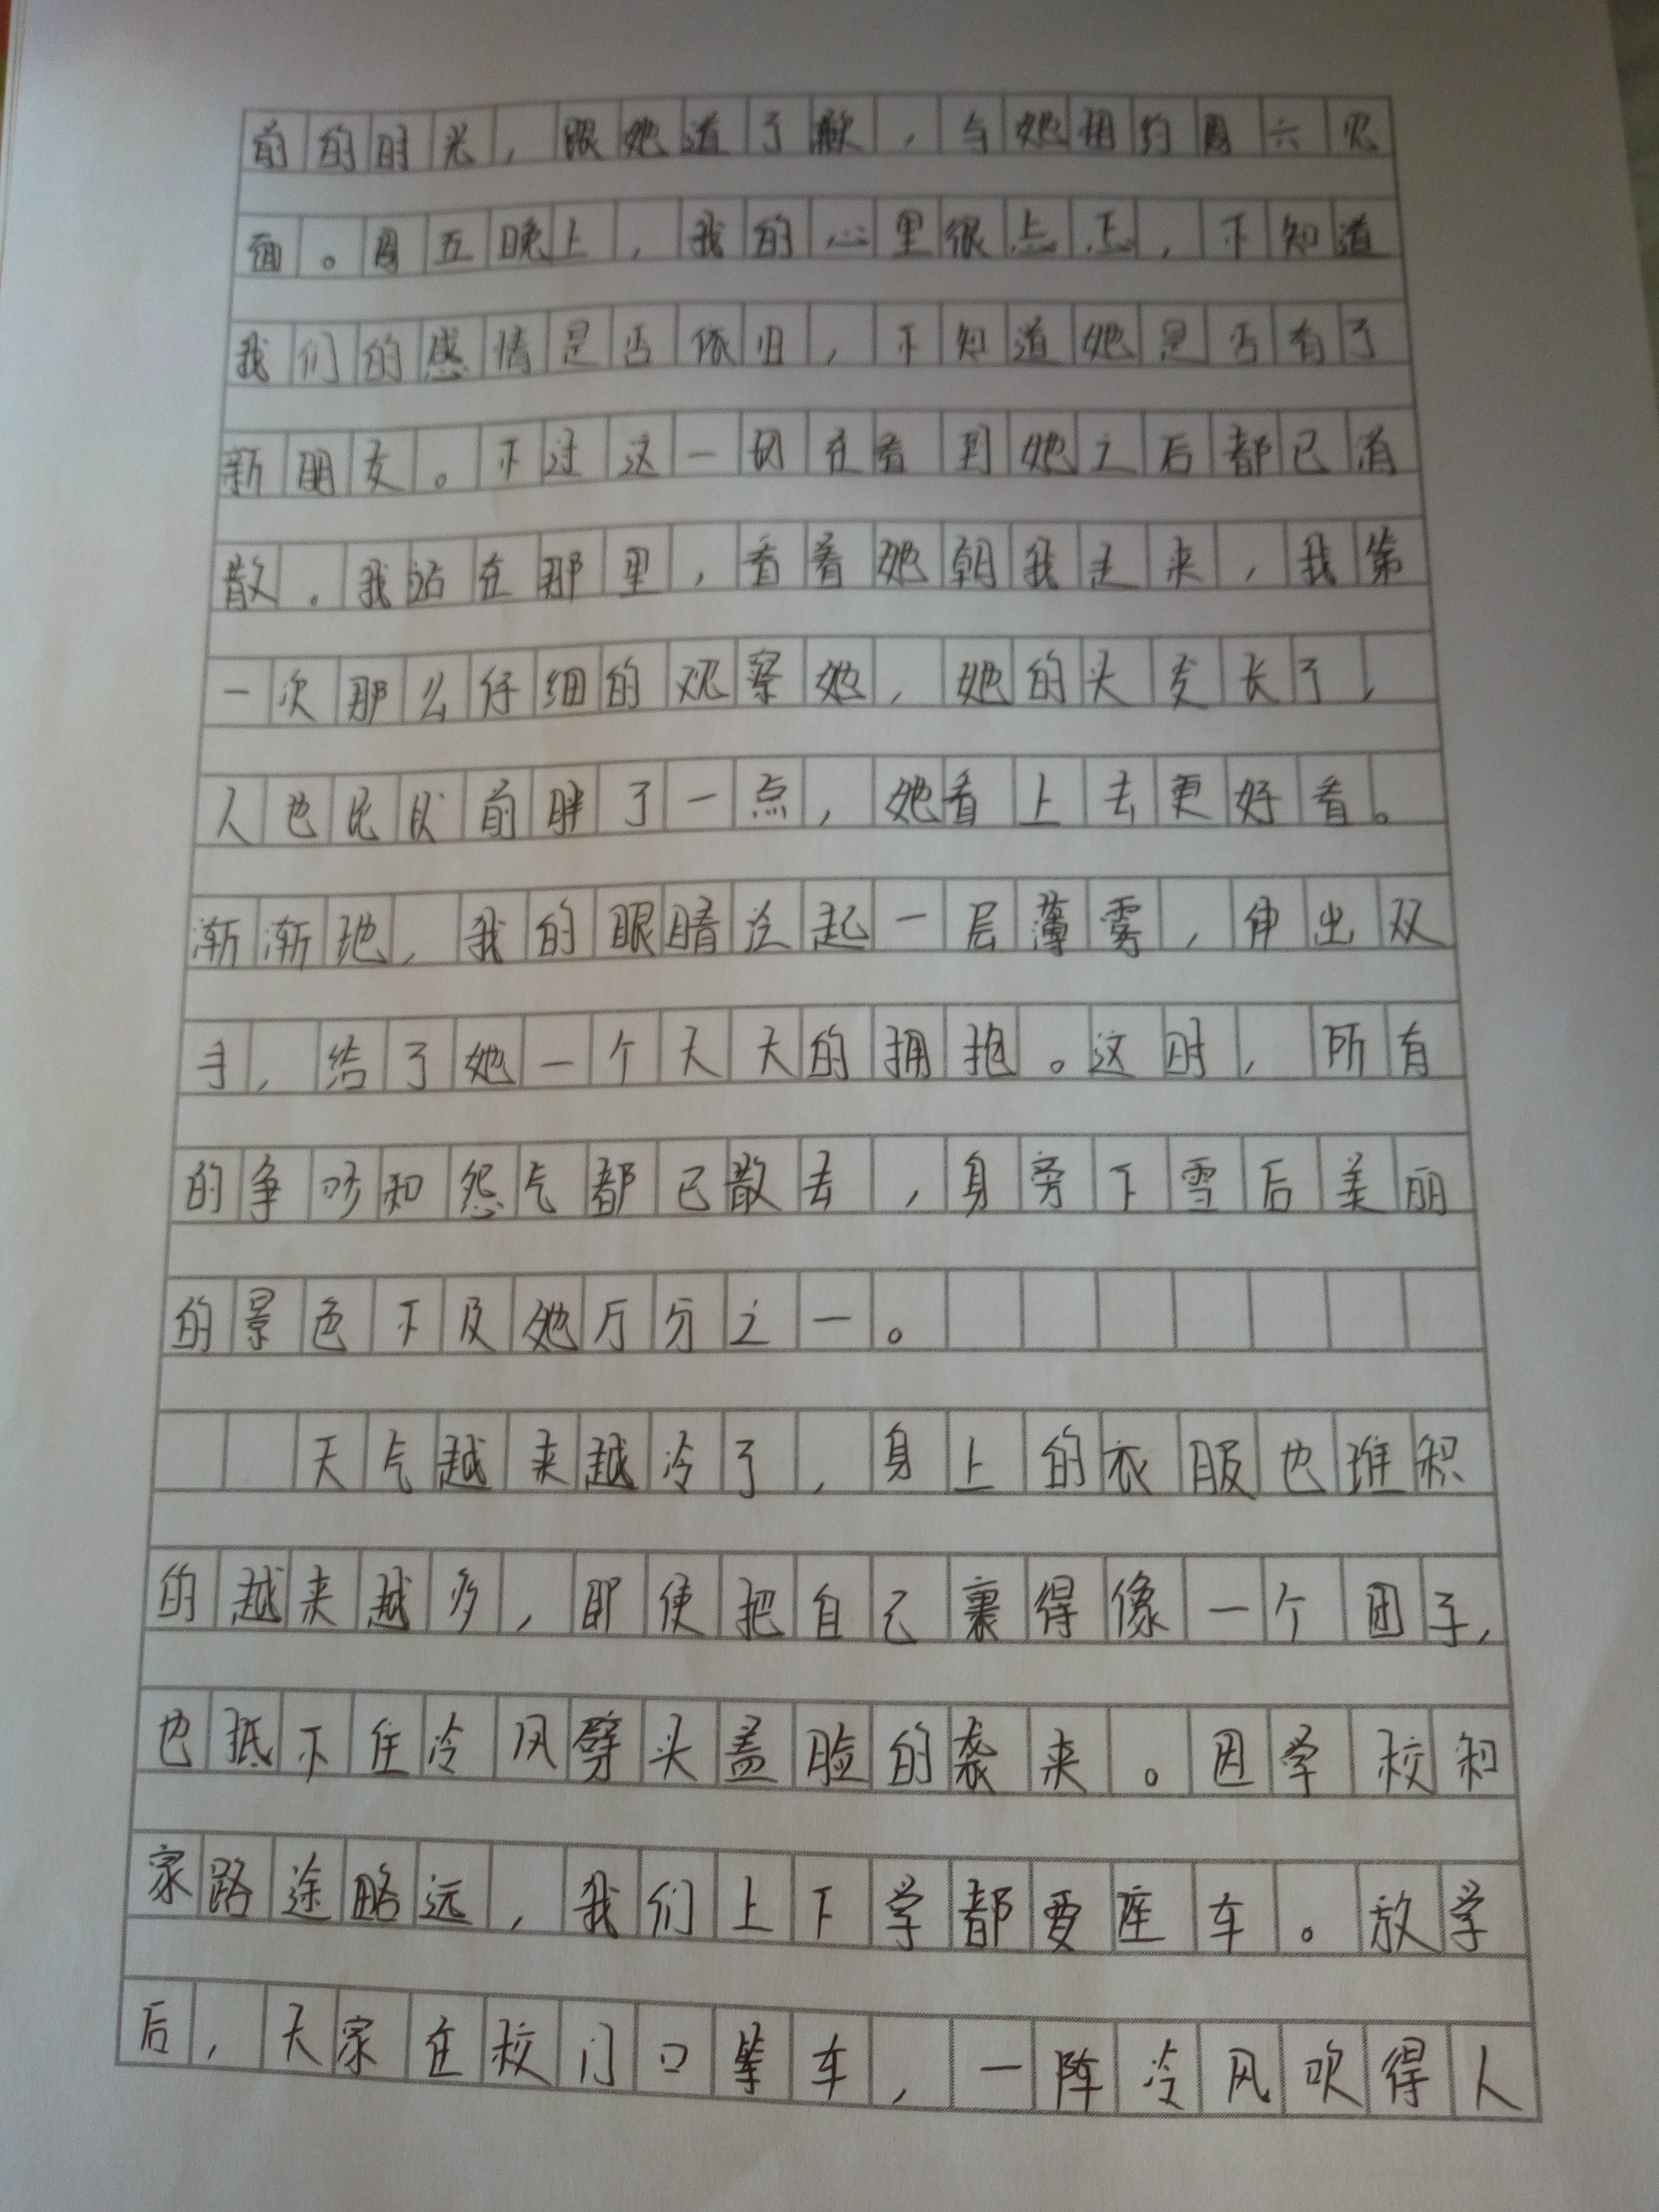 前的时光，跟她道了歉，与她相约周六见
面。周五晚上，我的心里很忐忑，不知道
我们的感情是否依旧，不知道她是否有了
新朋友。不过这一切在看到她之后都已消
散。我站在那里，看着她朝我走来，我第
一次那么仔细的观察她，她的头发长了，
人也比以前胖了一点，她看上去更好看。
渐渐地，我的眼睛泛起一层薄雾，伸出双
手，给了她一个大大的拥抱。这时，所有
的争吵和怨气都已散去，身旁下雪后美丽
的景色不及她万分之一。
天气越来越冷了，身上的衣服也堆积
的越来越多，即使把自己裹得像一个团子，
也抵不住冷风劈头盖脸的袭来。因学校和
家路途略远，我们上下学都要座车。放学
后，大家在校门口等车，一阵冷风吹得人